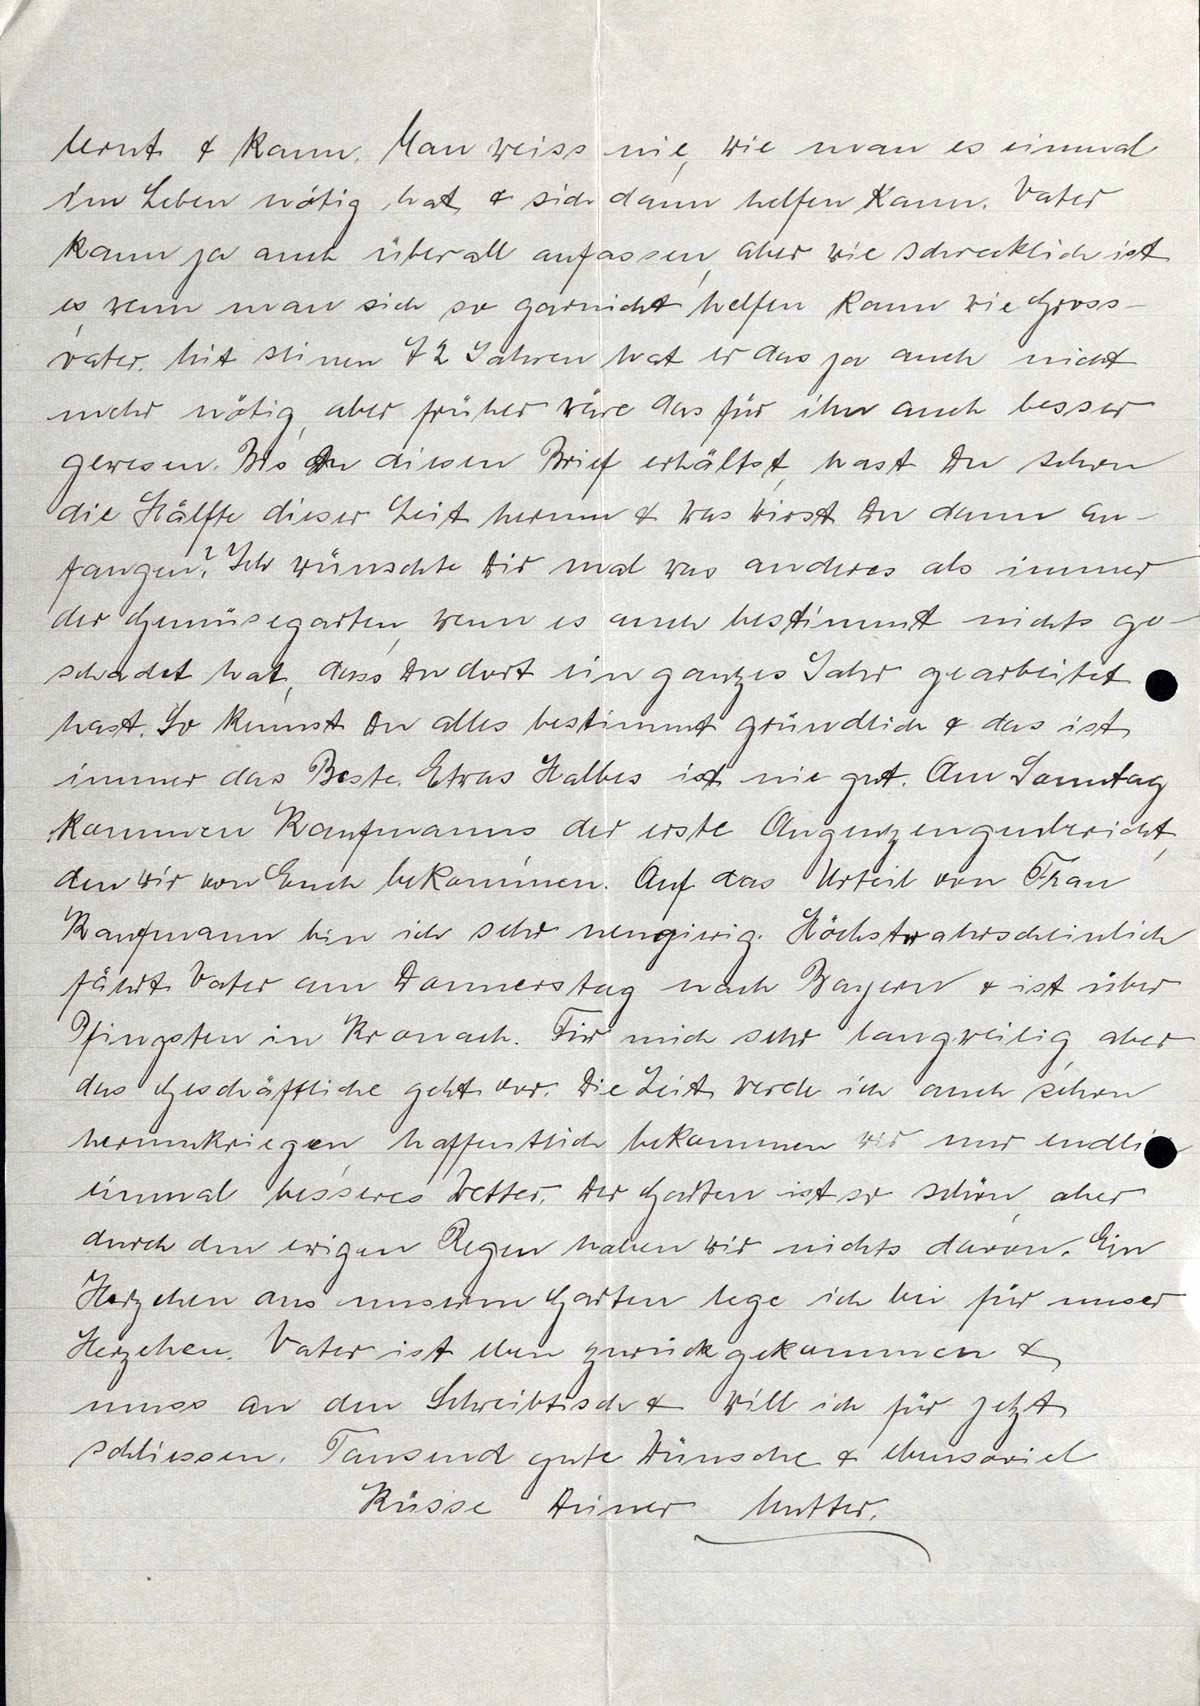 lernt & kann. Man weiss nie, wie man es einmal
im Leben nötig hat & sich dann helfen kann. Vater
kann ja auch überall anfassen, aber wie schrecklich ist
es, wenn man sich so garnicht helfen kann wie Gross-
vater. Mit seinen 72 Jahren hat er das ja auch nicht
mehr nötig, aber früher wäre das für ihn auch besser
gewesen. Bis Du diesen Brief erhältst, hast Du schon
die Hälfte dieser Zeit herum & was wirst Du dann an-
fangen? Ich wünschte Dir mal was anderes als immer
der Gemüsegarten, wenn es auch bestimmt nichts ge-
schadet hat, dass Du dort ein ganzes Jahr gearbeitet
hast. So kennst Du alles bestimmt gründlich & das ist
immer das Beste. Etwas Halbes ist nie gut. Am Sonntag
kommen Kaufmanns der erste Augenzeugenbericht,
den wir von Euch bekommen. Auf das Urteil von Frau
Kaufmann bin ich sehr neugierig. Höchstwahrscheinlich
fährt Vater am Donnerstag nach Bayern & ist über
Pfingsten in Kronach. Für mich sehr langweilig, aber
das Geschäftliche geht vor. Die Zeit werde ich auch schon
herumkriegen, hoffentlich bekommen wir nur endli
einmal besseres Wetter. Der Garten ist so schön, aber
durch den ewigen Regen haben wir nichts davon. Ein
Herzchen aus unserm Garten lege ich bei für unser
Herzchen. Vater ist eben zurückgekommen &
muss an den Schreibtisch & will ich für jetzt
schliessen. Tausend gute Wünsche & ebensoviel
Küsse Deiner Mutter.